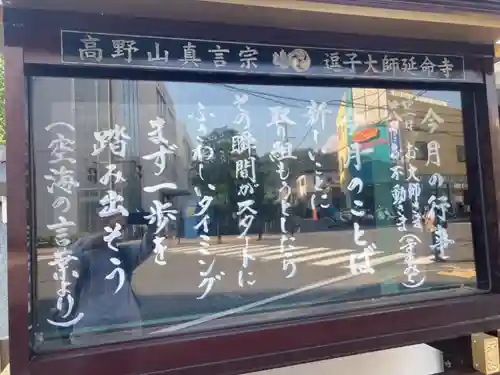 高野山真言宗 逗子大師延命寺
今月の行事
お大師さま
お不動さま
今月のことば
新しいことに
取り組もうとしたり
その瞬間がスタートに
ふさわしいタイミング
まず一歩を
踏み出そう
（空海の言葉より）